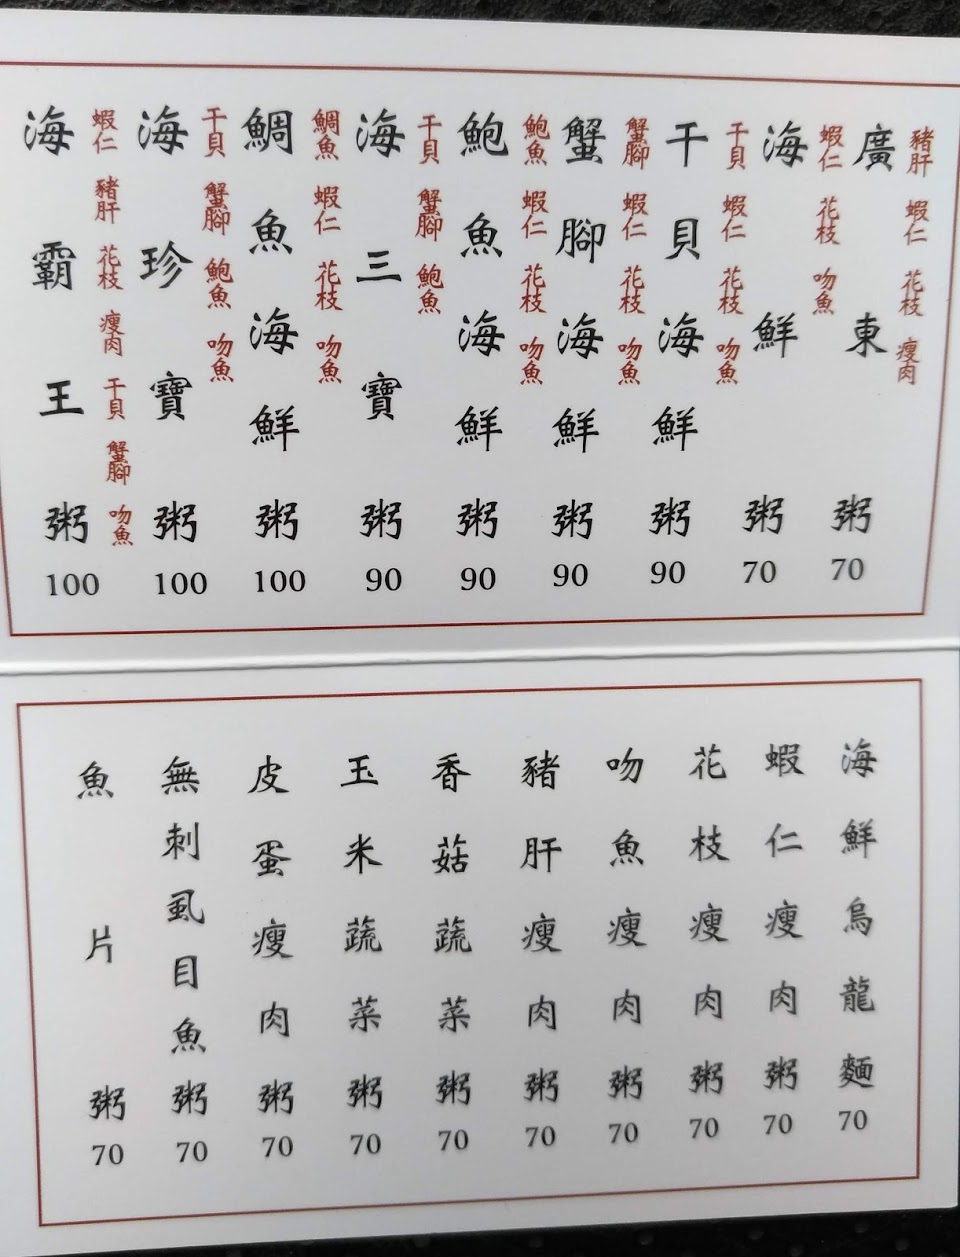 廣東粥 70
豬肝 蝦仁 花枝 瘦肉
海鮮粥 70
蝦仁 花枝 吻魚
干貝海鮮粥 90
干貝 蝦仁 花枝 吻魚
蟹腳海鮮粥 90
蟹腳 蝦仁 花枝 吻魚
鮑魚海鮮粥 90
鮑魚 蝦仁 花枝 吻魚
海三寶粥 90
干貝 蟹腳 鮑魚
鯛魚海鮮粥 100
鯛魚 蝦仁 花枝 吻魚
海珍寶粥 100
干貝 蟹腳 鮑魚 吻魚
海霸王粥 100
蝦仁 豬肝 花枝 瘦肉 干貝 蟹腳 吻魚
海鮮烏龍麵 70
蝦仁瘦肉粥 70
花枝瘦肉粥 70
吻魚瘦肉粥 70
豬肝瘦肉粥 70
香菇蔬菜粥 70
玉米蔬菜粥 70
皮蛋瘦肉粥 70
無刺虱目魚粥 70
魚片粥 70